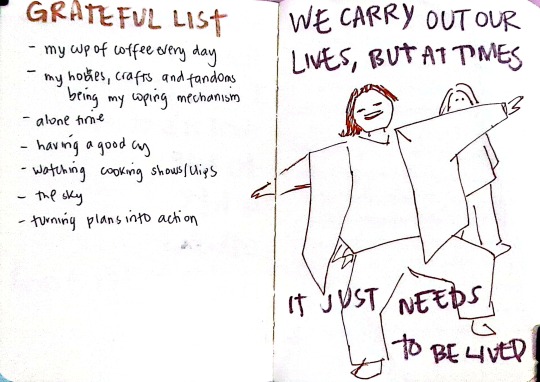 GRATEFUL LIST
- my cup of coffee every day
- my hobies, crafts and fandoms
being my coping mechanism
- alone time
- having a good cry
- watching cooking shows/clips
- the sky
- turning plans into action
WE CARRY OUT OUR
LIVES, BUT AT TIMES
IT JUST NEEDS
TO BE LIVED